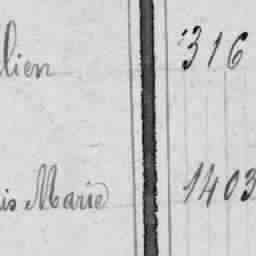 lien 316
is Marie 1403